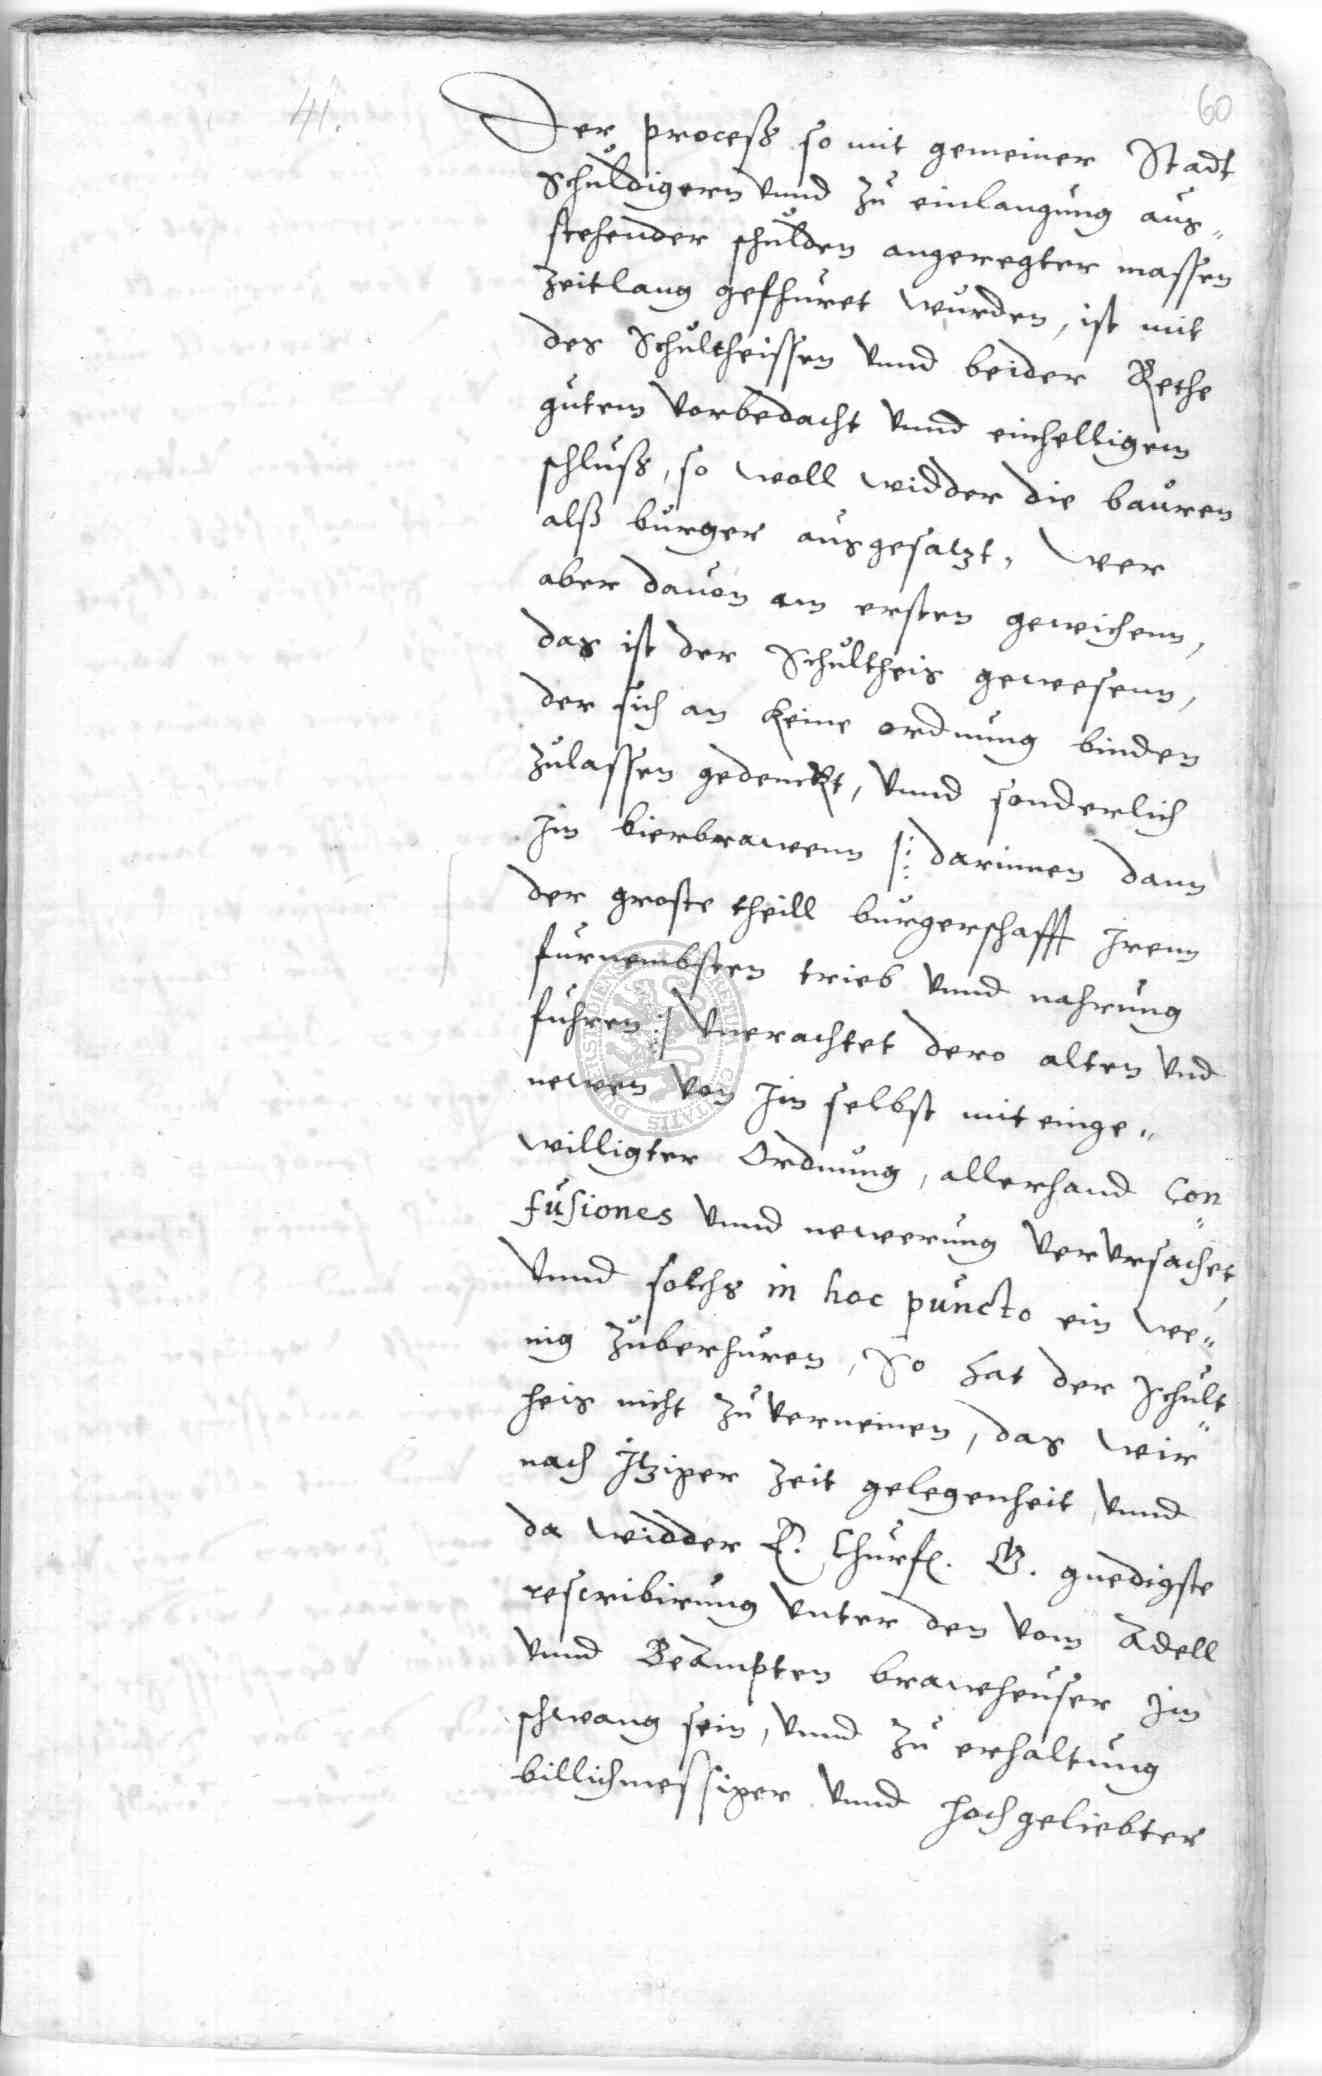 41.
60
Der process so mit gemeiner Stadt
Schuldigern vnnd zu einlangung aus„
stehender schulden angeregter massen
zeitlang gefhuret wurden, ist mit
des Schultheissen vnnd beider Rethe
gutem vorbedacht vnnd einhelligem
schluß, so woll widder die bauren
alß burger ausgesatzt, wer
aber dauon am ersten gewichenn,
das ist der Schultheis gewesenn,
der sich an keine ordnung binden
zulassen gedenckt, vnnd sonderlich
Im bierbrawenn /: darinnen dann
der groste theill burgerschafft Irenn
furnembsten trieb vnnd nahrung
fuhren :/ vnerachtet dero alten vnd
newen von Im selbst mit einge„
willigter Ordnung, allerhand Con„
fusiones vnnd newerung verursachet,
Vnnd solchs in hoc puncto ein we„
nig zuberhuren, So hat der Schult„
heis nicht zu verneinen, das wir
nach Itziger zeit gelegenheit vnnd
da widder E. Churf. G. gnedigste
rescribirung vnter den vom Adell
vnnd Beampten brawheuser Im
schwang sein, vnnd zu erhaltung
billichmessiger vnnd hochgeliebter
DIENS
CRETUM
CIVITATIS